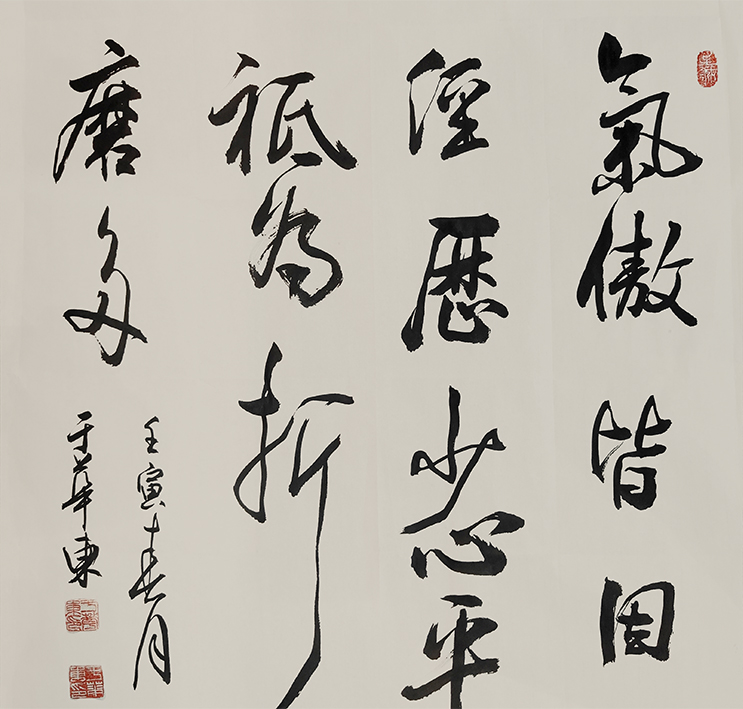 氣傲皆因
經歷少心平
祇為折
磨多
壬寅春月
于華東